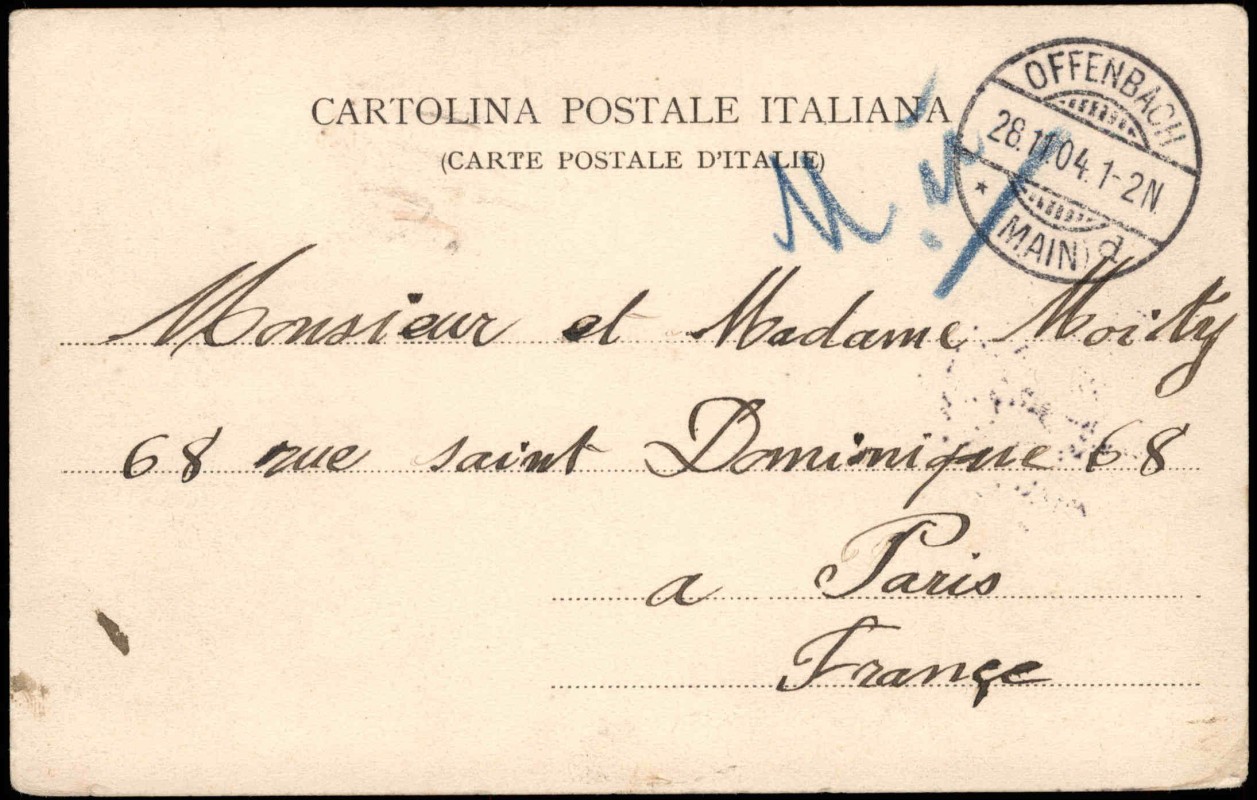 CARTOLINA POSTALE ITALIANA
(CARTE POSTALE D'ITALIE)
OFFENBACH
28.11.04.1-2N.
* (MAIN) d
Monsieur et Madame Moitty
68 rue saint Dominique 68
a Paris
Françe